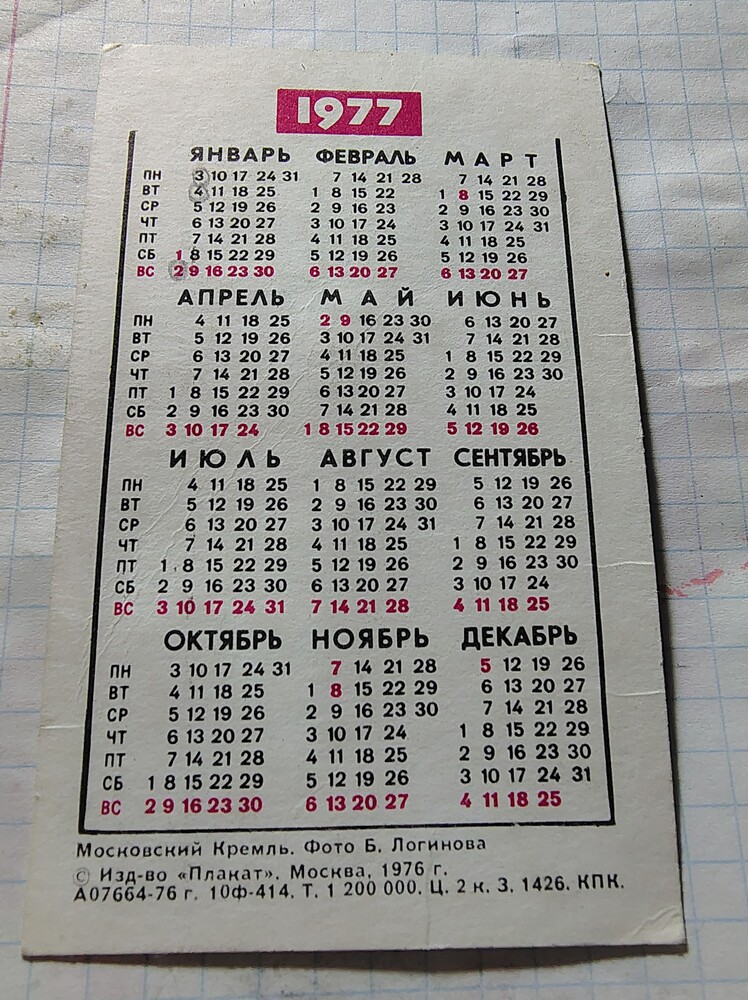 1977
ЯНВАРЬ ФЕВРАЛЬ МАРТ
ПН 3 10 17 24 31 7 14 21 28 7 14 21 28
ВТ 4 11 18 25 1 8 15 22 1 8 15 22 29
СР 5 12 19 26 2 9 16 23 2 9 16 23 30
ЧТ 6 13 20 27 3 10 17 24 3 10 17 24 31
ПТ 7 14 21 28 4 11 18 25 4 11 18 25
СБ 1 8 15 22 29 5 12 19 26 5 12 19 26
ВС 2 9 16 23 30 6 13 20 27 6 13 20 27
АПРЕЛЬ МАЙ ИЮНЬ
ПН 4 11 18 25 2 9 16 23 30 6 13 20 27
ВТ 5 12 19 26 3 10 17 24 31 7 14 21 28
СР 6 13 20 27 4 11 18 25 1 8 15 22 29
ЧТ 7 14 21 28 5 12 19 26 2 9 16 23 30
ПТ 1 8 15 22 29 6 13 20 27 3 10 17 24
СБ 2 9 16 23 30 7 14 21 28 4 11 18 25
ВС 3 10 17 24 1 8 15 22 29 5 12 19 26
ИЮЛЬ АВГУСТ СЕНТЯБРЬ
ПН 4 11 18 25 1 8 15 22 29 5 12 19 26
ВТ 5 12 19 26 2 9 16 23 30 6 13 20 27
СР 6 13 20 27 3 10 17 24 31 7 14 21 28
ЧТ 7 14 21 28 4 11 18 25 1 8 15 22 29
ПТ 1 8 15 22 29 5 12 19 26 2 9 16 23 30
СБ 2 9 16 23 30 6 13 20 27 3 10 17 24
ВС 3 10 17 24 31 7 14 21 28 4 11 18 25
ОКТЯБРЬ НОЯБРЬ ДЕКАБРЬ
ПН 3 10 17 24 31 7 14 21 28 5 12 19 26
ВТ 4 11 18 25 1 8 15 22 29 6 13 20 27
СР 5 12 19 26 2 9 16 23 30 7 14 21 28
ЧТ 6 13 20 27 3 10 17 24 1 8 15 22 29
ПТ 7 14 21 28 4 11 18 25 2 9 16 23 30
СБ 1 8 15 22 29 5 12 19 26 3 10 17 24 31
ВС 2 9 16 23 30 6 13 20 27 4 11 18 25
Московский Кремль. Фото Б. Логинова
© Изд-во «Плакат». Москва, 1976 г.
А07664-76 г. 10ф-414. Т. 1 200 000. Ц. 2 к. З. 1426. КПК.